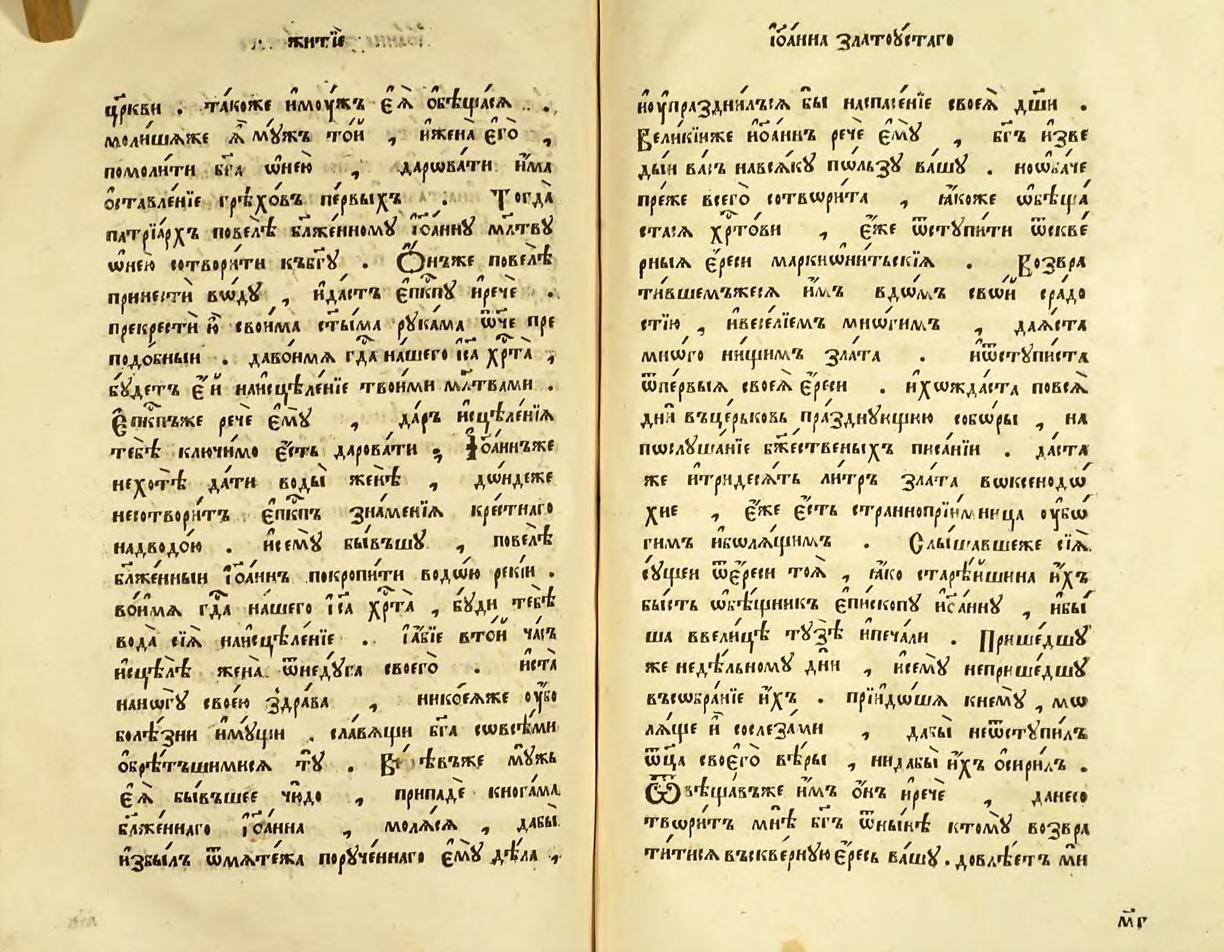 житїе
цр҃кви . та́коже и҆мꙋ́жъ є҆ѧ̀ ѻ҆бѣща́сѧ .
моли́шѧже ѧ҆̀ мꙋ́жъ то́й , и҆жена̀ є҆гѡ̀ ,
помоли́ти бг҃а ѡ҆не́ю , дарѡва́ти и҆́ма
ѻ҆ставле́нїе грѣхо́въ пе́рвыхъ . Тогда̀
патрїа́рхъ повелѣ̀ бл҃же́нному і҆ѡа́нну мл҃твꙋ
ѡ҆не́ю сотвори́ти къбг҃ꙋ . Ѻ҆́нъже повелѣ̀
принестѝ вѡдꙋ̀ , и҆да́стъ є҆пⷭ҇кпꙋ и҆речѐ .
прекрестѝ ю҆̀ свои́ма ст҃ы́ма рꙋка́ма ѻ҆́ч҃е пре
подо́бныи . даво́имѧ гдⷭ҇а на́шего і҆с҃а хрⷭ҇та̀ ,
бꙋ́детъ є҆́й наисцѣле́нїе твои́ми мл҃твами .
Є҆пⷭ҇кпъже речѐ є҆мꙋ̀ , да́ръ и҆сцѣле́нїѧ
тебѣ̀ ключи́мо є҆́сть дарова́ти , І҆ѡа́ннъже
нехотѣ̀ да́ти воды̀ женѣ̀ , до́ндеже
несотвори́тъ є҆пⷭ҇кпъ зна́менїѧ крⷭ҇тнаго
надводо́ю . и҆семꙋ̀ бы́вшꙋ , повелѣ̀
бл҃же́нныи і҆ѡа́ннъ покропи́ти водо́ю рекі́и .
во́имѧ гдⷭ҇а на́шего і҆с҃а хрⷭ҇та̀ , бꙋ́ди тебѣ̀
вода̀ сїѧ̀ наисцѣле́нїе . і҆а҆́бїе вто́й ча́съ
и҆сцѣлѣ̀ жена̀ ѿнедꙋ́га своегѡ̀ . и҆ста̀
нано́гꙋ свое́ю здра́ва , никоеѧ́же ᲂу҆́бо
болѣ́зни и҆мꙋ́щи . сла́вѧщи бг҃а совсѣ́ми
ѻ҆брѣ́тъшимисѧ тꙋ̀ . Ви́дѣвъже мꙋ́жъ
є҆ѧ̀ бы́вшее чю́до , припадѐ кногама
бл҃же́ннаго і҆ѡа́нна , молѧ́сѧ , дабы̀
и҆збы́лъ ѿмѧте́жа порꙋче́ннаго є҆мꙋ̀ дѣ́ла ,
і҆ѡа́нна златоꙋ́стаго
и҆ᲂу҆праздни́лъсѧ бы̀ наспасе́нїе своеѧ̀ дш҃и .
Вели́кїиже и҆ѡа́ннъ речѐ є҆мꙋ̀ , бг҃ъ и҆зве
ды́и ва́съ навсѧ́кꙋ по́льзꙋ ва́шꙋ . но ѻ҆ба́че
пре́же всегѡ̀ сотвори́та , ꙗ҆́коже ѡ҆бѣща́
стасѧ хрⷭ҇то́ви , є҆́же ѿстꙋпи́ти ѿскве́
рныѧ є҆́реси маркиѡни́тьскїѧ . Возвра
ти́вшемъжесѧ и҆́мъ вдо́мъ сво́й сра́до
стїю , и҆весе́лїемъ мно́гимъ , дада́ста
мно́го ни́щимъ зла́та . и҆ѿстꙋпи́ста
ѿпе́рвыѧ своеѧ̀ є҆́реси . и҆хожда́ста повсѧ̀
днѝ въце́рьковь пра́зднꙋющию собо́ры , на
послꙋша́нїе бж҃е́ственыхъ писа́нїи . да́ста
же и҆три́десѧть ли́тръ зла́та воксенодо́
хие , є҆́же є҆́сть страннопрїи́мница ᲂу҆бо́
гимъ и҆болѧ́щимъ . Слы́шавшеже сїѧ̀
сꙋ́щеи ѿє҆́реси тоѧ̀ , ꙗ҆́ко старѣ́йшина и҆́хъ
бы́сть ѡ҆бѣ́щникъ є҆пи́скопꙋ и҆ѡа́ннꙋ , и҆бы́
ша ввели́цѣ тꙋзѣ̀ и҆печа́ли . Прише́дшꙋ
же недѣ́льномꙋ дн҃и , и҆семꙋ̀ неприше́дшꙋ
въсобра́нїе и҆́хъ . прїидо́шѧ кнемꙋ̀ , мо
лѧ́ще и҆̀ сослеза́ми , дабы̀ неѿстꙋпи́лъ
ѿц҃а̀ своегѡ̀ вѣ́ры , нидабы̀ и҆́хъ ѻ҆си́рилъ .
Ѿвѣща́въже и҆̀мъ ѻ҆́нъ и҆речѐ , данесо
твори́тъ мнѣ̀ бг҃ъ ѿны́нѣ ктомꙋ̀ возвра
ти́тисѧ въскве́рнꙋю є҆́ресь ва́шꙋ . довлѣ́етъ мѝ
м҃г